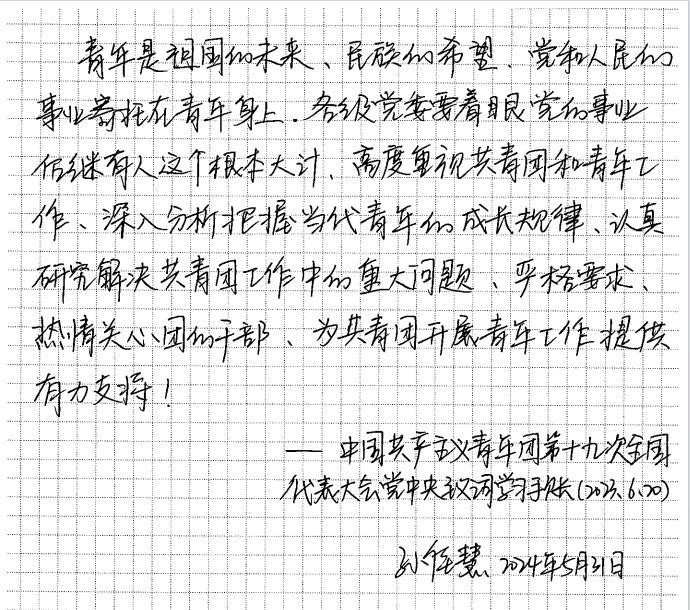 青年是祖国的未来、民族的希望、党和人民的
事业寄托在青年身上.各级党委要着眼党的事业
后继有人这个根本大计、高度重视共青团和青年工
作、深入分析把握当代青年的成长规律、认真
研究解决共青团工作中的重大问题、严格要求、
热情关心团的干部、为共青团开展青年工作提供
有力支持！
—— 中国共产主义青年团第十九次全国
代表大会党中央致词学习手账(2023.6.20)
孙 慧. 2024年5月31日